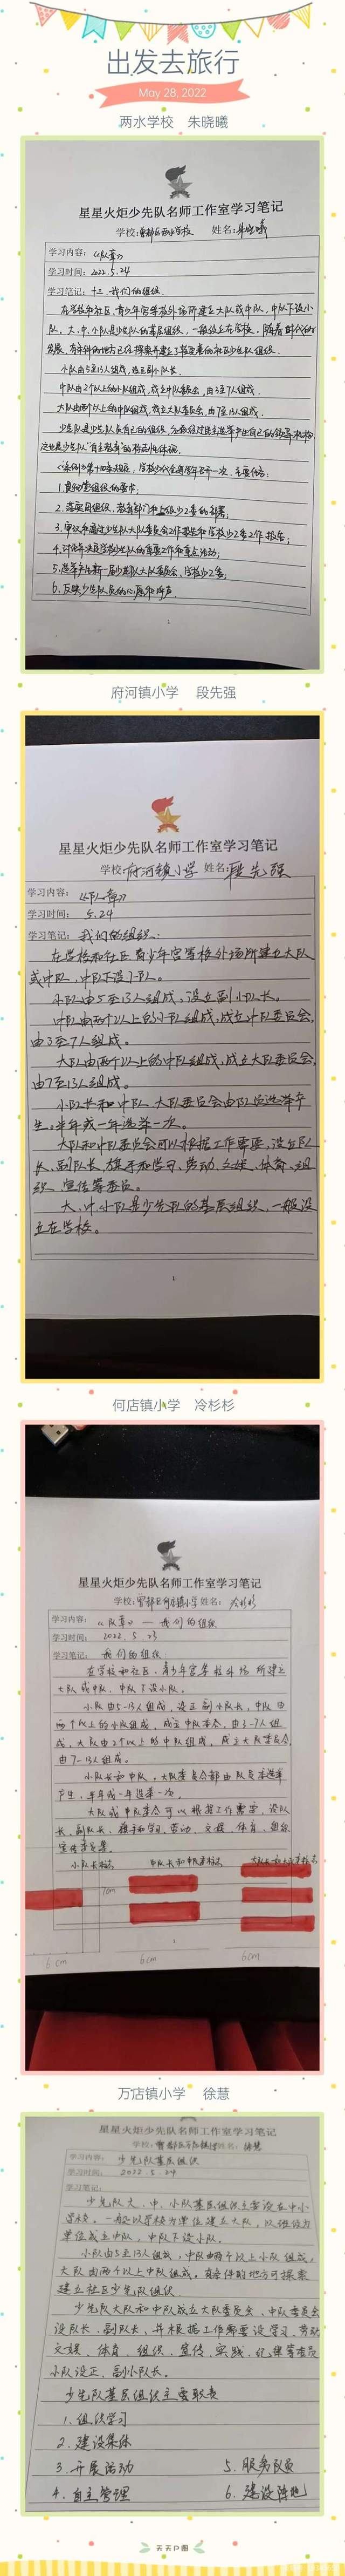 出发去旅行
May 28, 2022
两水学校 朱晓曦
星星火炬少先队名师工作室学习笔记
学校:曾都区两水学校 姓名:朱晓曦
学习内容:《队章》
学习时间:2022.5.24
学习笔记:十三、我们的组织
在学校和社区、青少年宫等校外场所建立大队或中队,中队下设小
队。大、中、小队是少先队的基层组织,一般设立在学校。随着时代的
发展,有条件的地方已在探索并建立了校外的社区少先队组织。
小队由5至13人组成,设正副小队长。
中队由2个以上的小队组成,成立中队委员会,由3至7人组成。
大队由两个以上的中队组成,成立大队委员会,由7至13人组成。
少先队是少先队员自己的组织,
这也是少先队"自主教育"的标志性体现。
1.贯彻党组织的要求;
2.落实团组织、教育部门和上级少工委的部署;
3.审议和通过少先队大队委员会工作报告和学校少工委工作报告;
4.讨论和决定学校少先队的重要工作和重大活动;
5.选举产生新一届少先队大队委员会、学校少工委;
6.反映少先队员的心愿和呼声。
1
府河镇小学 段先强
星星火炬少先队名师工作室学习笔记
学校:府河镇小学 姓名:段先强
学习内容:《队章》
学习时间:5.24
学习笔记:我们的组织:
在学校和社区、青少年宫等校外场所建立大队
或中队,中队下设小队。
小队由5至13人组成,设正副小队长。
中队由两个以上的小队组成,成立中队委员会,
由3至7人组成。
大队由两个以上的中队组成,成立大队委员会,
由7至13人组成。
小队长和中队、大队委员会由队员选举产
生。半年或一年选举一次。
大队和中队委员会可以根据工作需要,设立队
长、副队长、旗手和学习、劳动、文娱、体育、组
织、宣传等委员。
大、中、小队是少先队的基层组织,一般设
立在学校。
1
何店镇小学 冷杉杉
星星火炬少先队名师工作室学习笔记
学校:曾都区何店镇小学 姓名:冷杉杉
学习内容:《队章》——我们的组织
学习时间:2022.5.23
学习笔记:我们的组织
在学校和社区、青少年宫等校外场所建立
大队或中队,中队下设小队。
小队由5-13人组成,设正副小队长,中队由
两个以上的小队组成,成立中队委会,由3-7人组
成,大队由2个以上的中队组成,成立大队委员会,
由7-13人组成。
小队长和中队、大队委员会都由队员选举
产生,半年或一年选举一次。
大队或中队委会可以根据工作需要,设队
长、副队长、旗手和学习、劳动、文娱、体育、组织、
宣传等委员。
小队长标志 中队长和中队委标志 大队长和大队委标志
7cm
6cm 6cm 6cm
万店镇小学 徐慧
星星火炬少先队名师工作室学习笔记
学校:曾都区万店镇小学 姓名:徐慧
学习内容:少先队基层组织
学习时间:2022.5.24
学习笔记:
少先队大、中、小队基层组织主要设在中小
学校。一般以学校为单位建立大队,以班级为
单位成立中队,中队下设小队。
小队由5至13人组成,中队由两个以上小队组成,
大队由两个以上中队组成。有条件的地方可探索
建立社区少先队组织。
少先队大队和中队成立大队委员会、中队委员会
设队长、副队长,并根据工作需要设学习、劳动
文娱、体育、组织、宣传、实践、纪律等委员
小队设正、副小队长。
少先队基层组织主要职责
1.组织学习
2.建设集体
3.开展活动 5.服务队员
4.自主管理 6.建设阵地
天天P图